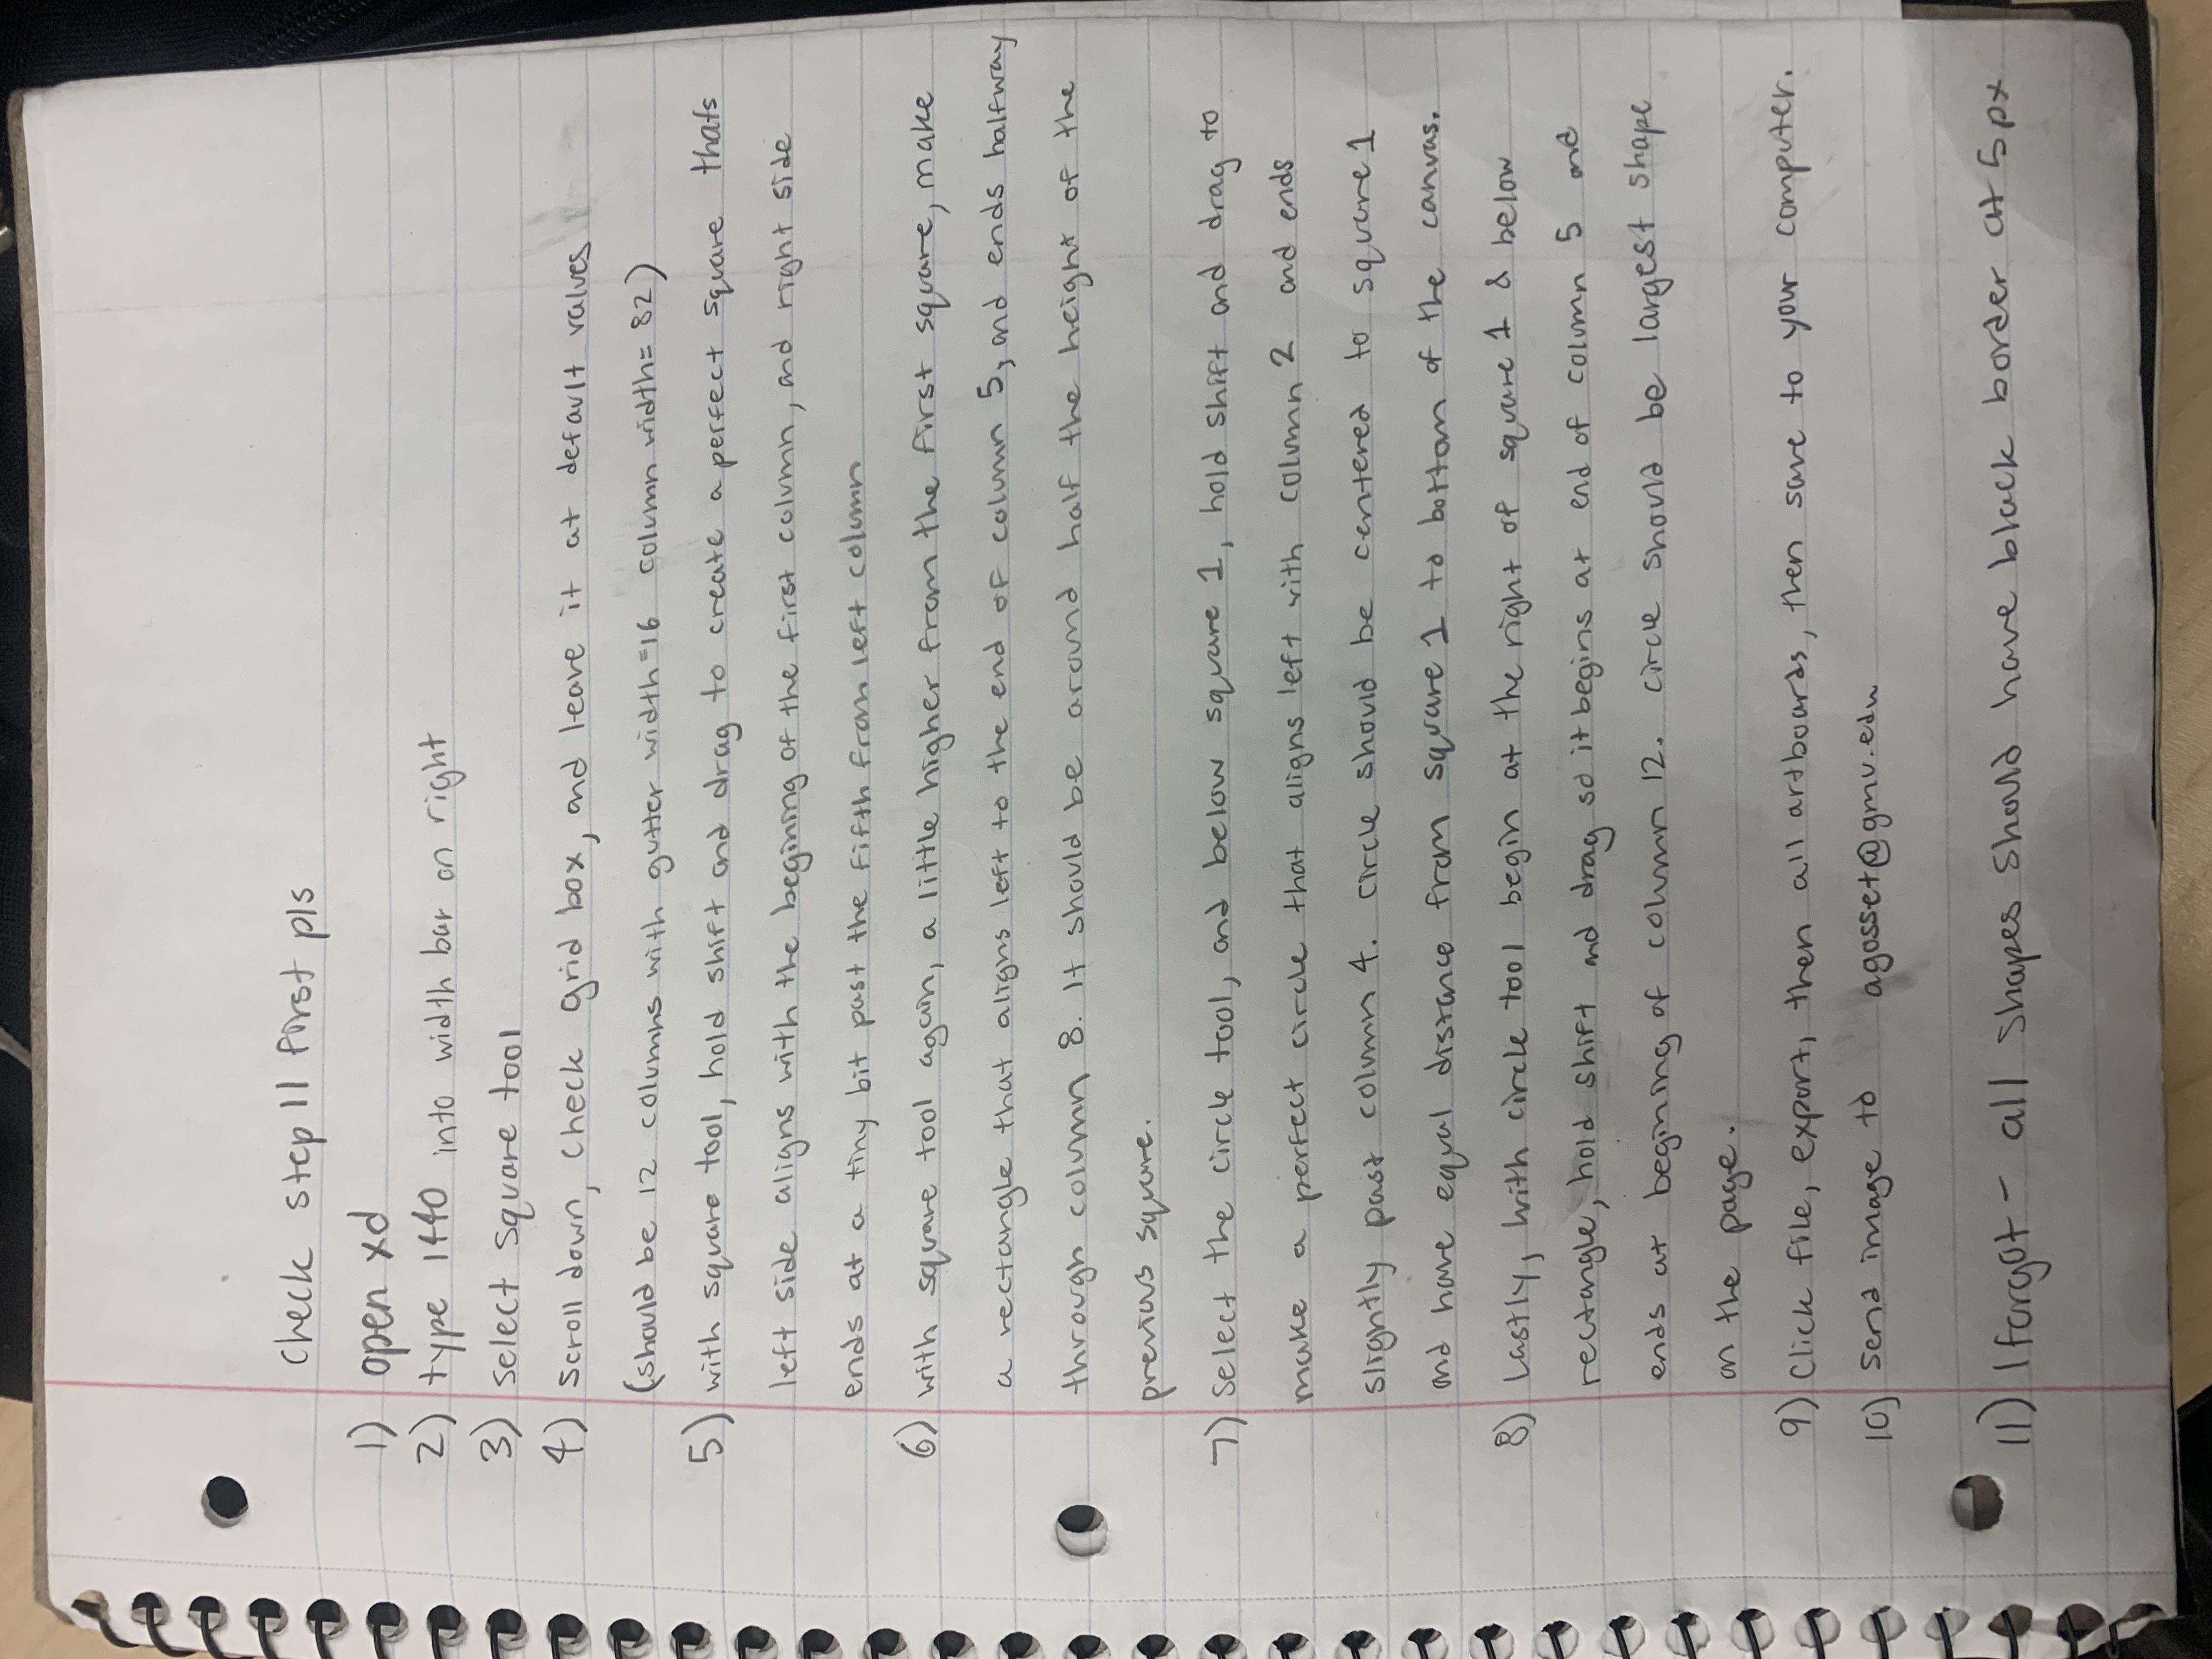 check step 11 first pls
1) open xd
2) type 1440 into width bar on right
3) select square tool
4) scroll down, check grid box, and leave it at default values
(should be 12 columns with gutter width=16 column width= 82)
5) with square tool, hold shift and drag to create a perfect square thats
left side aligns with the begining of the first column, and right side
ends at a tiny bit past the fifth from left column
6) with square tool again, a little higher from the first square, make
a rectangle that aligns left to the end of column 5, and ends halfway
through column 8. It should be around half the height of the
previous square.
7) Select the circle tool, and below square 1, hold shift and drag to
make a perfect circle that aligns left with column 2 and ends
slightly past column 4. Circle should be centered to square 1
and have equal distance from square 1 to bottom of the canvas.
8) Lastly, with circle tool begin at the right of square 1 & below
rectangle, hold shift and drag so it begins at end of column 5 and
ends at begining of column 12. Circle should be largest shape
on the page.
9) Click file, export, then all artboards, then save to your computer.
10) Send image to agosset@gmu.edu
11) I forgot - all shapes should have black border at 5px